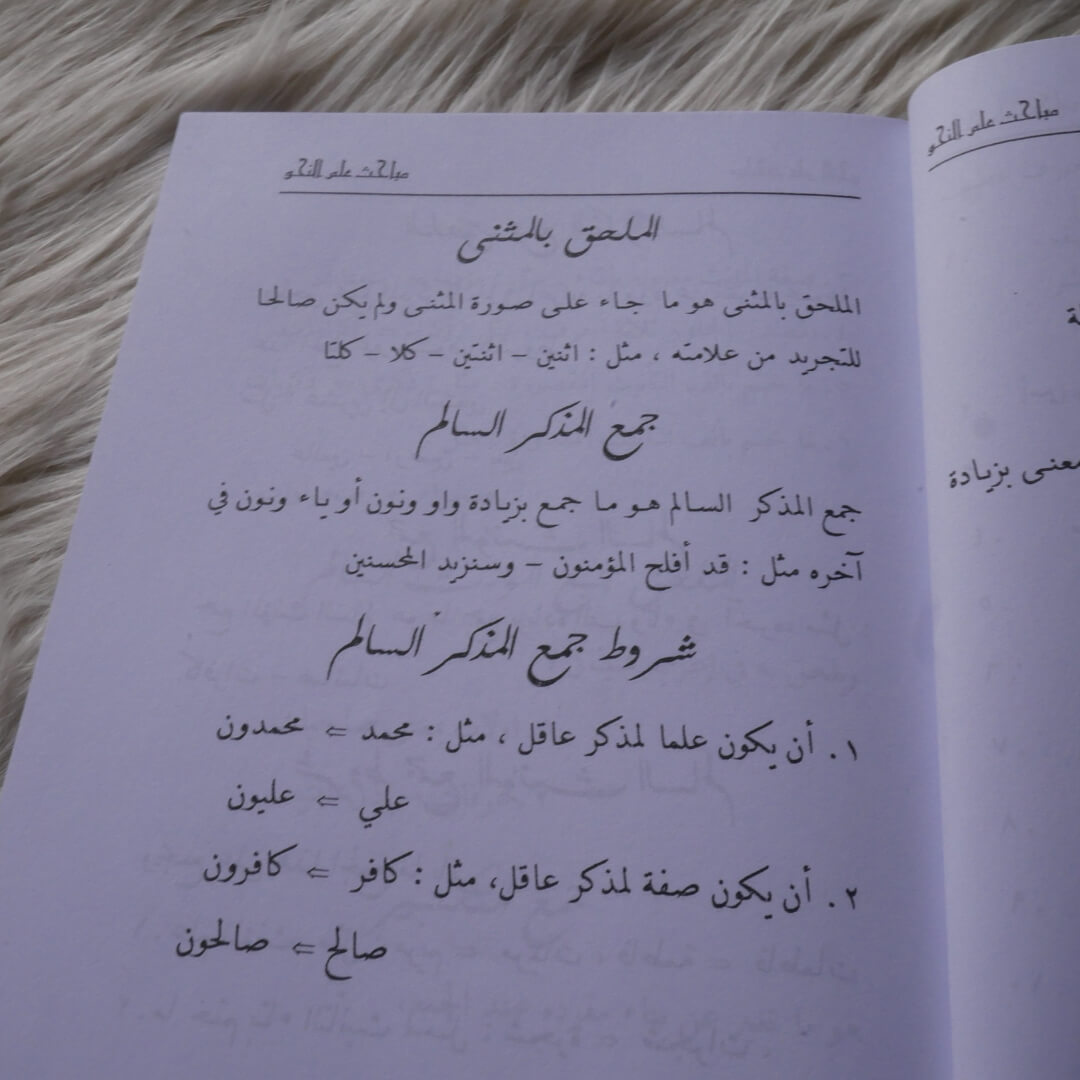 مباحث علم النحو
الملحق بالمثنى
الملحق بالمثنى هو ما جاء على صورة المثنى ولم يكن صالحا
للتجريد من علامته ، مثل : اثنين – اثنتين – كلا – كلتا
جمع المذكر السالم
جمع المذكر السالم هو ما جمع بزيادة واو ونون أو ياء ونون في
آخره مثل : قد أفلح المؤمنون – وسنزيد المحسنين
شروط جمع المذكر السالم
١. أن يكون علما لمذكر عاقل ، مثل : محمد ⇐ محمدون
علي ⇐ عليون
٢. أن يكون صفة لمذكر عاقل، مثل : كافر ⇐ كافرون
صالح ⇐ صالحون
مباحث علم النحو
بزيادة